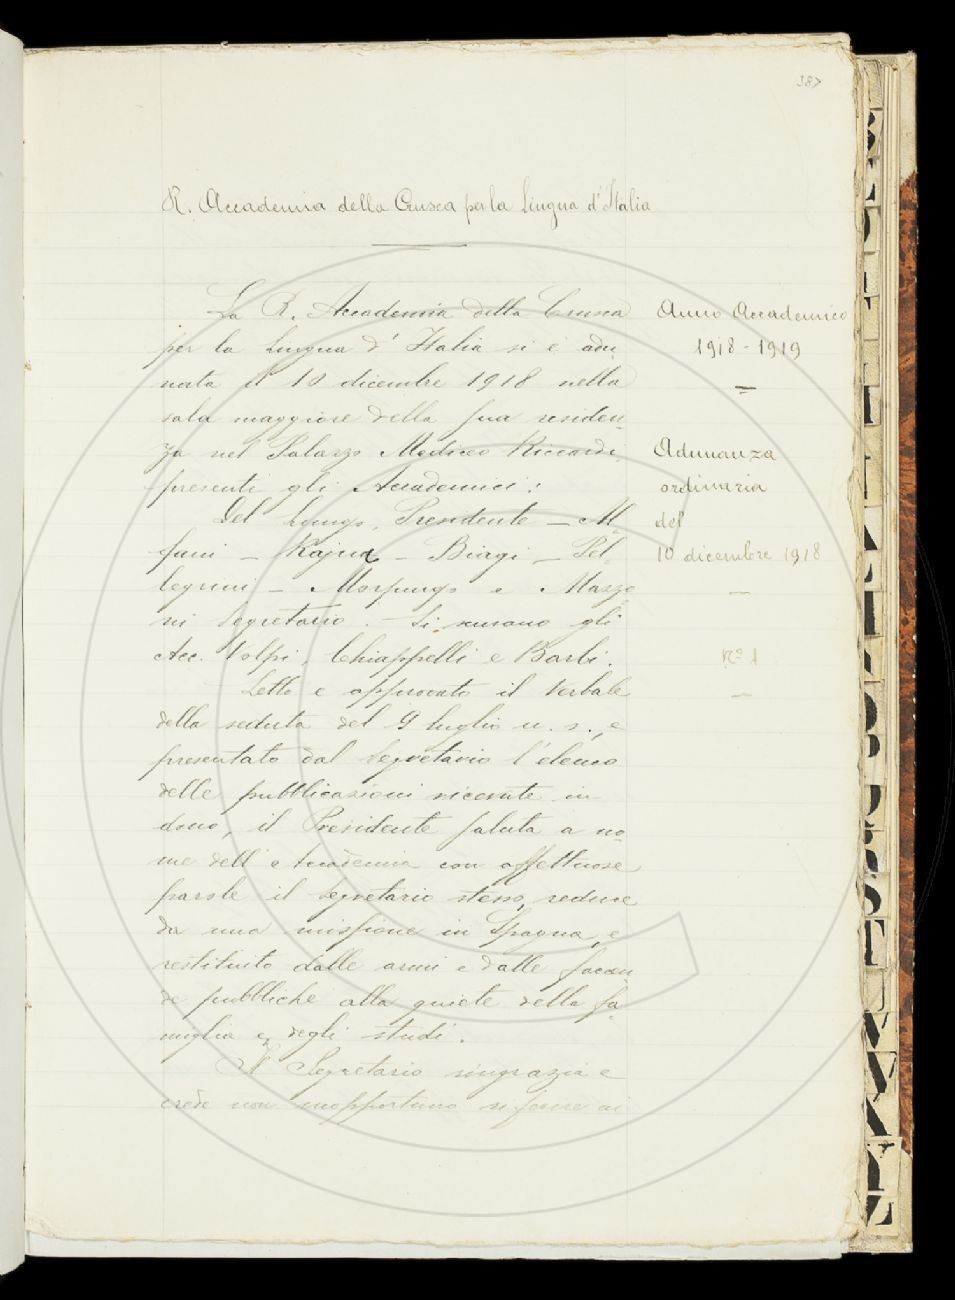 387
R. Accademia della Crusca per la Lingua d'Italia
La R. Accademia della Crusca
per la lingua d'Italia si è adu-
nata il 10 dicembre 1918 nella
sala maggiore della sua residen-
za nel Palazzo Mediceo Riccardi
presenti gli Accademici:
Del Lungo, Presidente — 
— Rajna — Biagi — Pel-
legrini — Morpurgo e Mazzo-
ni Segretario. — Si scusano gli
Acc. Volpi, Chiappelli e Barbi.
Letto e approvato il verbale
della seduta del 9 luglio u. s., e
presentato dal Segretario l'elenco
delle pubblicazioni ricevute in
dono, il Presidente saluta a no-
me dell'Accademia con affettuose
parole il Segretario stesso, reduce
da una missione in Spagna, e
restituito dalle armi e dalle faccen-
de pubbliche alla quiete della fa-
miglia e degli studi.
Il Segretario ringrazia e
crede non inopportuno riferire ai
Anno Accademico
1918-1919
Adunanza
ordinaria
del
10 dicembre 1918
N.º 1